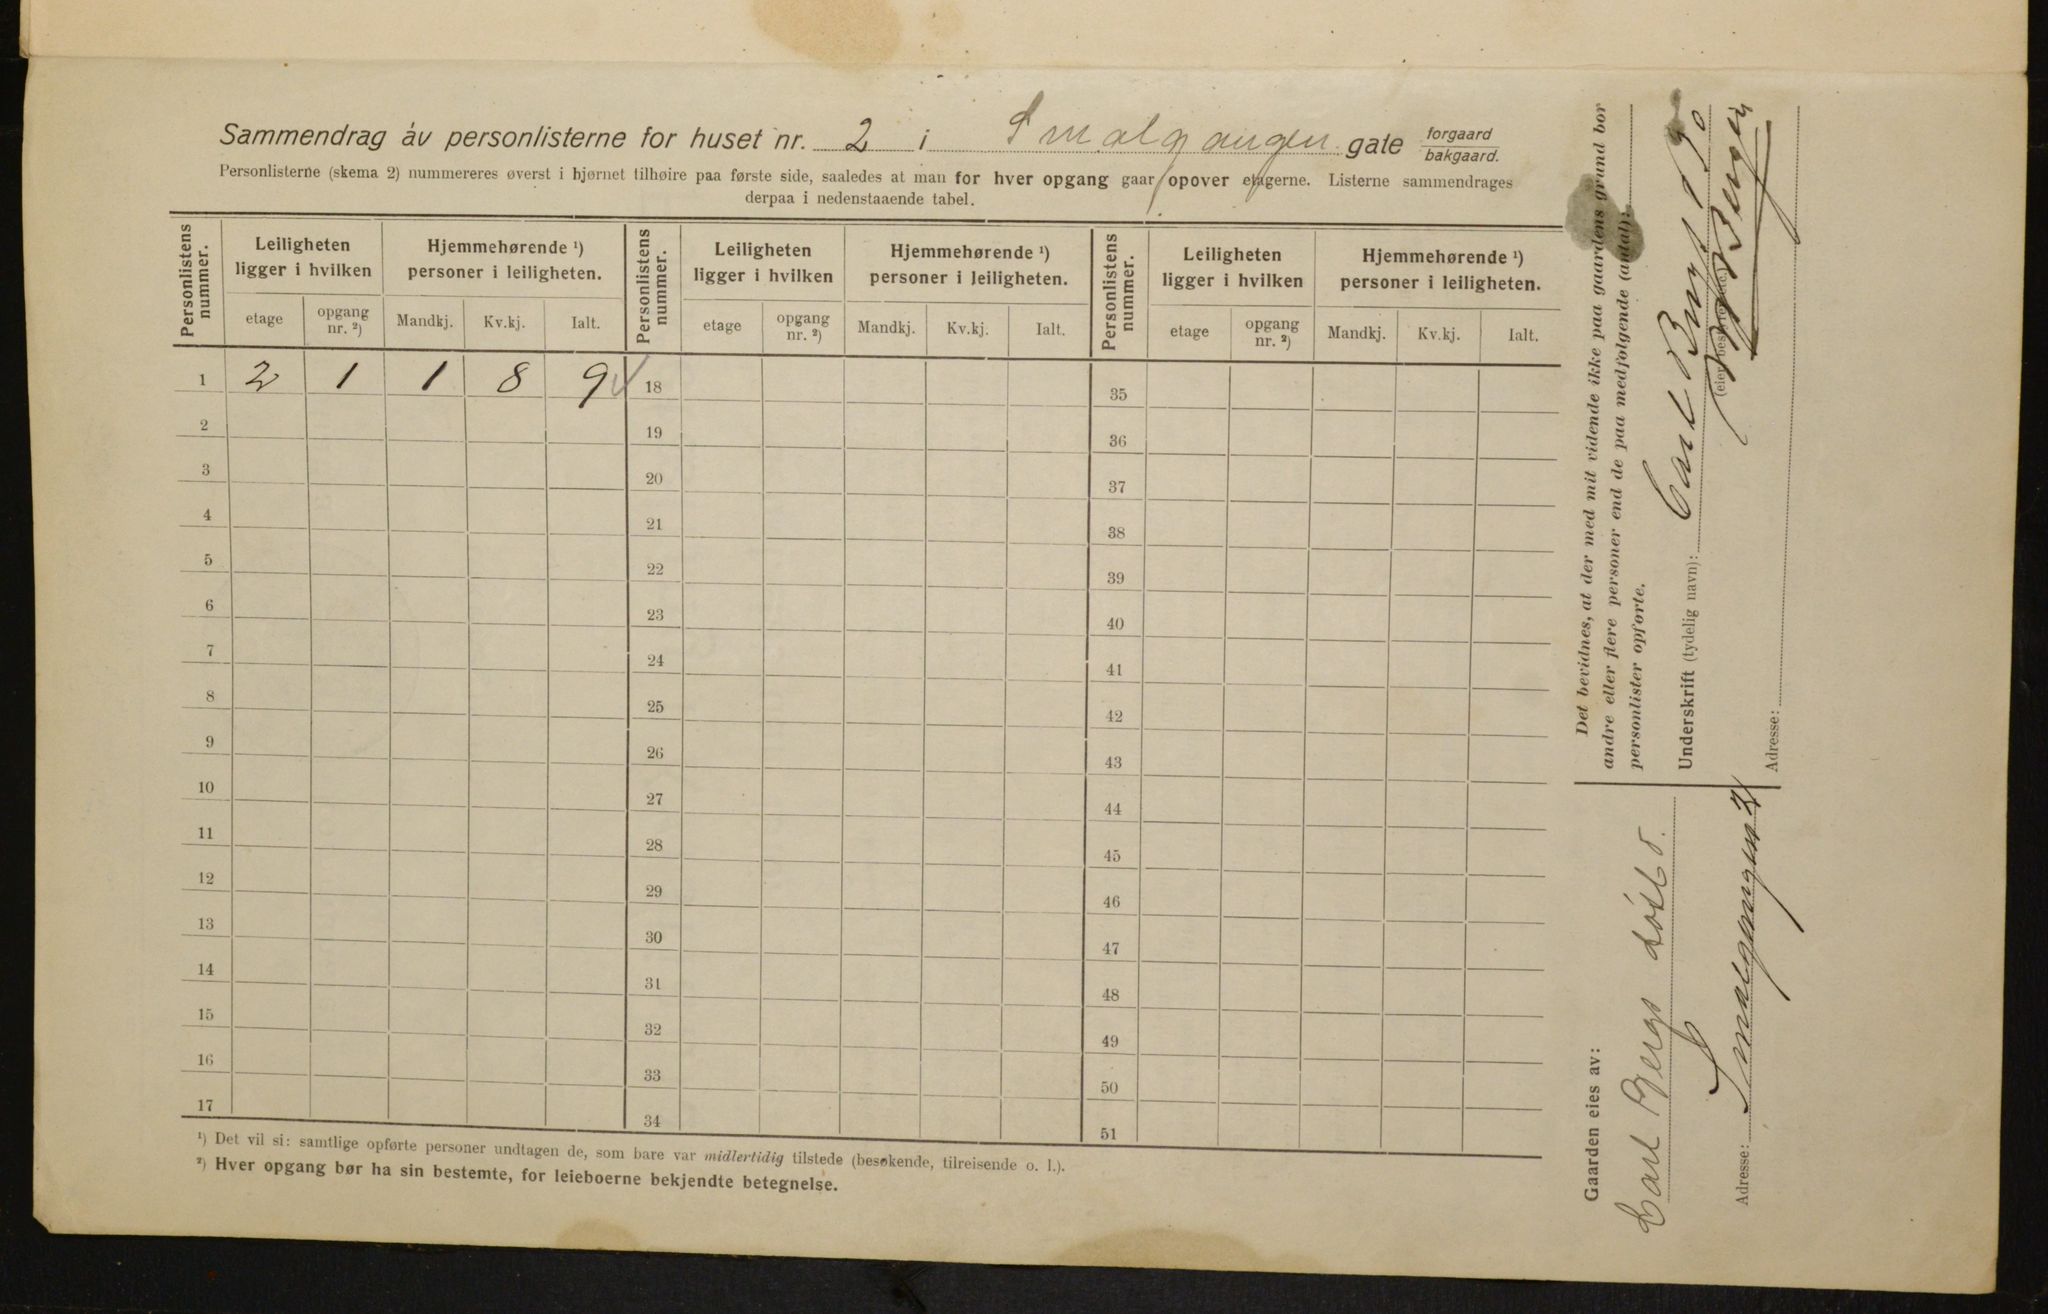 Sammendrag av personlisterne for huset nr. 2 i Smalgangen gate forgaard bakgaard.
Personlisterne (skema 2) nummereres øverst i hjørnet tilhøire paa første side, saaledes at man for hver opgang gaar opover etagerne. Listerne sammendrages
derpaa i nedenstaaende tabel.
Personlistens nummer. Leiligheten ligger i hvilken Hjemmehørende ¹) personer i leiligheten. Personlistens nummer. Leiligheten ligger i hvilken Hjemmehørende ¹) personer i leiligheten. Personlistens nummer. Leiligheten ligger i hvilken Hjemmehørende ¹) personer i leiligheten.
etage opgang nr. ²) Mandkj. Kv.kj. Ialt. etage opgang nr. ²) Mandkj. Kv.kj. Ialt. etage opgang nr. ²) Mandkj. Kv.kj. Ialt.
1 2 1 1 8 9 18 35
2 19 36
3 20 37
4 21 38
5 22 39
6 23 40
7 24 41
8 25 42
9 26 43
10 27 44
11 28 45
12 29 46
13 30 47
14 31 48
15 32 49
16 33 50
17 34 51
¹) Det vil si: samtlige opførte personer undtagen de, som bare var midlertidig tilstede (besøkende, tilreisende o. l.).
²) Hver opgang bør ha sin bestemte, for leieboerne bekjendte betegnelse.
Det bevidnes, at der med mit vidende ikke paa gaardens grund bor
andre eller flere personer end de paa medfølgende (antal):
personlister opførte.
Underskrift (tydelig navn): Carl
Adresse:
Gaarden eies av:
Carl Bergs
Adresse: Smalgangen 2